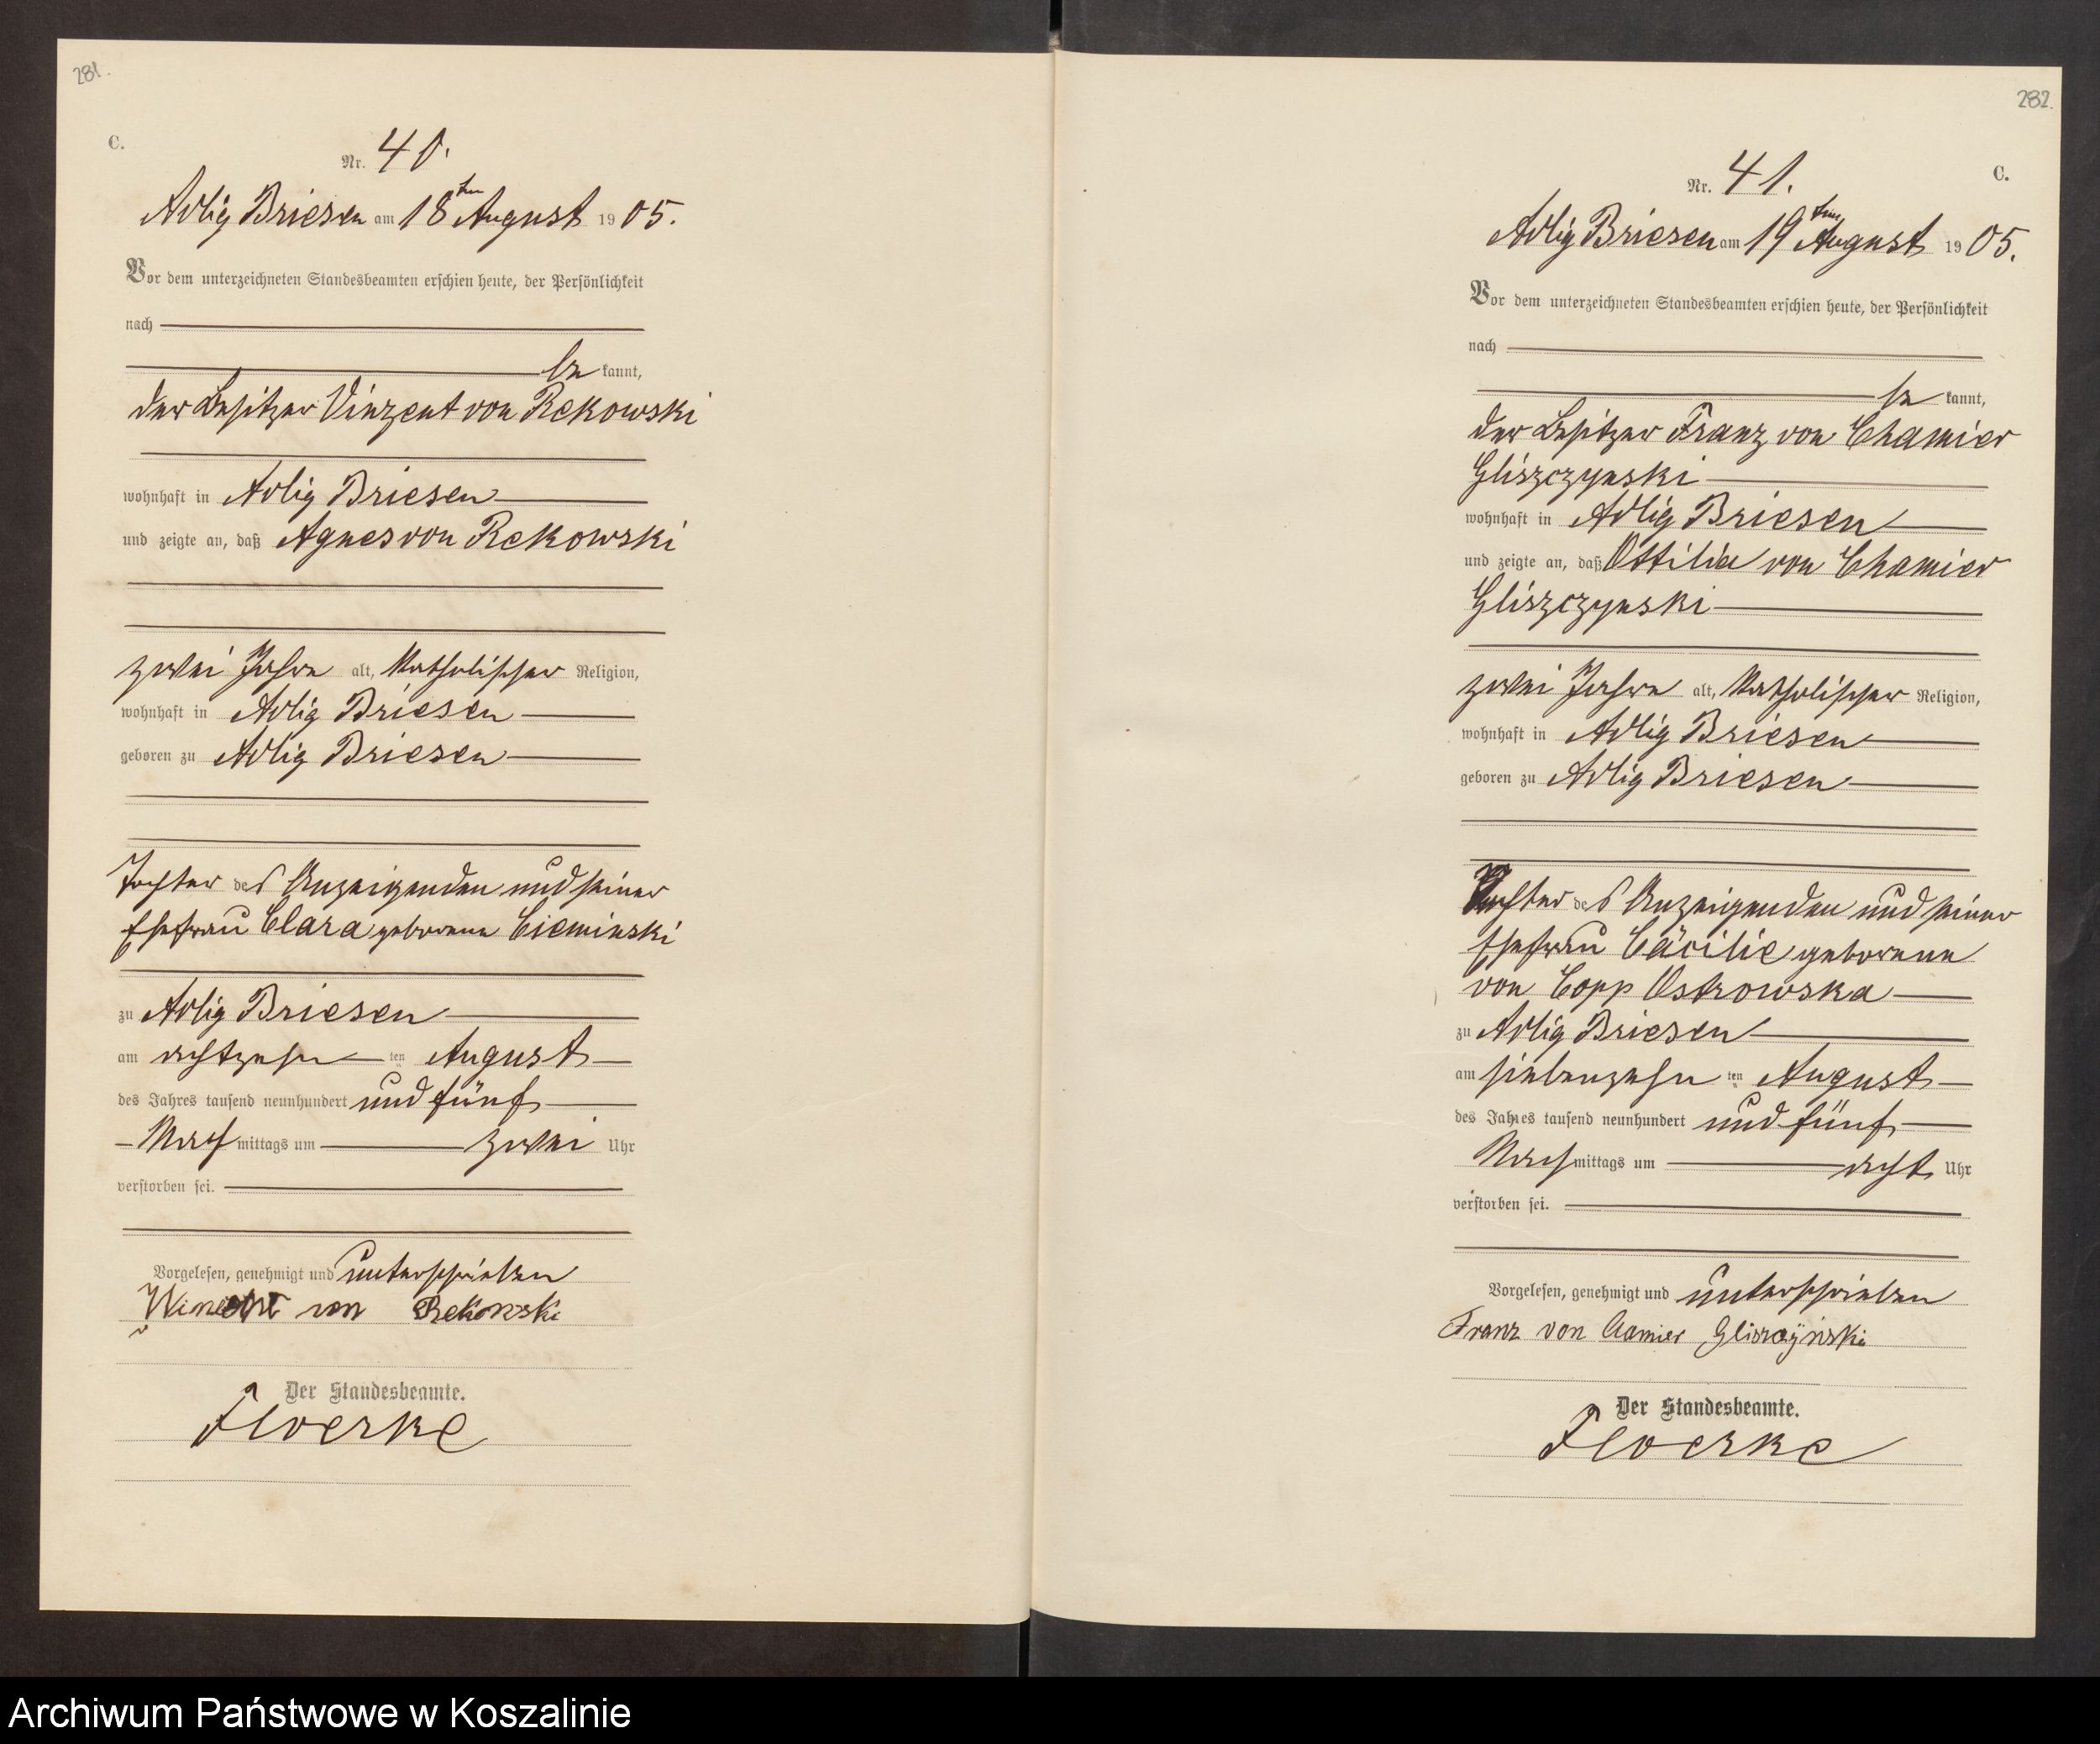 281.
C.
Nr. 40.
Adlig Briesen am 18ten August 1905.
Vor dem unterzeichneten Standesbeamten erschien heute, der Persönlichkeit
nach
be kannt,
der Besitzer Vinzent von Rekowski
wohnhaft in Adlig Briesen
und zeigte an, daß Agnes von Rekowski
zwei Jahre alt, katholischer Religion,
wohnhaft in Adlig Briesen
geboren zu Adlig Briesen
Tochter des Anzeigenden und seiner
Ehefrau Clara geborene Cieminski
zu Adlig Briesen
am achtzehn ten August
des Jahres tausend neunhundert und fünf
Nach mittags um zwei Uhr
verstorben sei.
Vorgelesen, genehmigt und unterschrieben
von Rekowski
Der Standesbeamte.
Floerke
282.
C.
Nr. 41.
Adlig Briesen am 19ten August 1905.
Vor dem unterzeichneten Standesbeamten erschien heute, der Persönlichkeit
nach
be kannt,
der Besitzer Franz von Chamier
Gliszczynski
wohnhaft in Adlig Briesen
und zeigte an, daß Ottilia von Chamier
Gliszczynski
zwei Jahre alt, katholischer Religion,
wohnhaft in Adlig Briesen
geboren zu Adlig Briesen
Tochter des Anzeigenden und seiner
Ehefrau Cäcilie geborene
von Copp Ostrowska
zu Adlig Briesen
am siebenzehn ten August
des Jahres tausend neunhundert und fünf
Nach mittags um acht Uhr
verstorben sei.
Vorgelesen, genehmigt und unterschrieben
Franz von Camier Gliszczyński
Der Standesbeamte.
Floerke
Archiwum Państwowe w Koszalinie